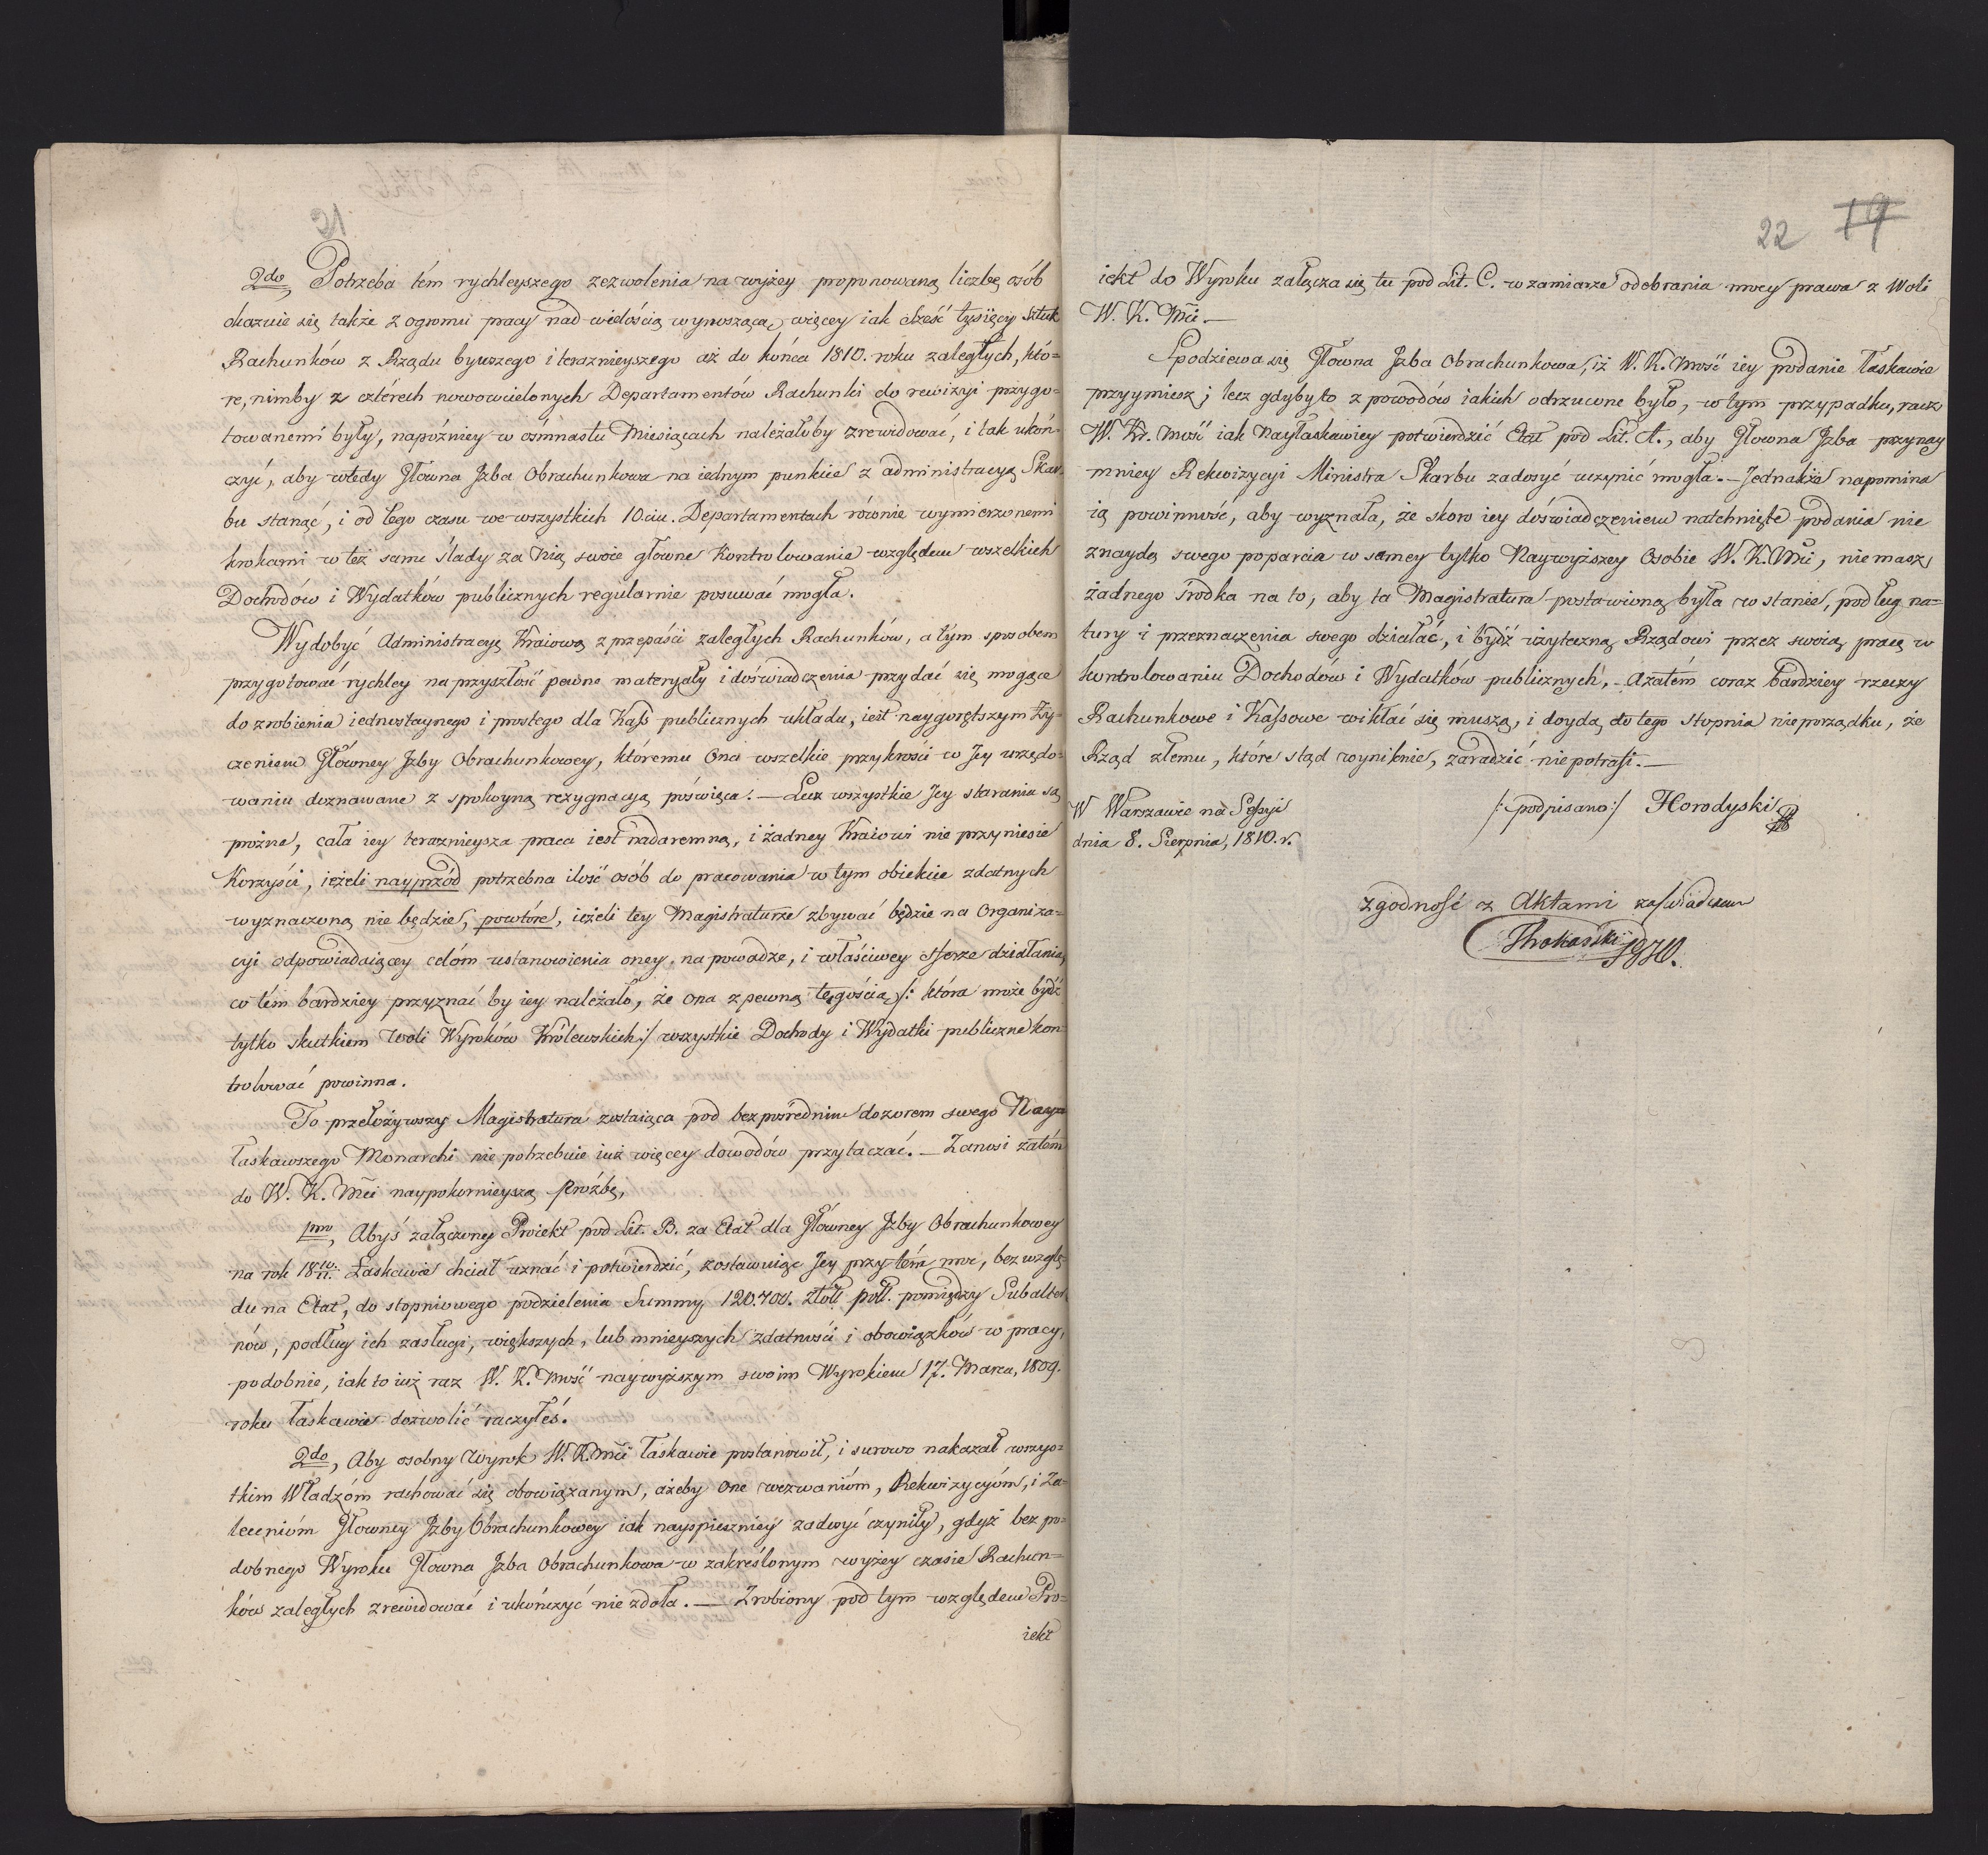 21
2do, Potrzeba tém rychleyszego zezwolenia na wyżey proponowaną liczbę osób
okazuie się także z ogromu pracy nad wielością wynoszącą więcey iak sześć tysięcy sztuk
Rachunków z Rządu bywszego i teraznieyszego aż do końca 1810. roku zaległych, któ=
re, nimby z czterech nowowcielonych Departamentów Rachunki do rewizyi przygo=
towanemi były, napóźniey w ośmnastu Miesiącach należałoby zrewidować, i tak ukoń=
czyć, aby wtedy Główna Jzba Obrachunkowa na iednym punkcie z administracyą Skar=
bu stanąć, i od tego czasu we wszystkich 10.ciu. Departamentach równie wymierzonemi
krokami w też same ślady za Nią swoie główne Kontrolowanie względem wszelkich
Dochodów i Wydatków publicznych regularnie posuwać mogła.
Wydobyć Administracyę Kraiową z przepaści zaległych Rachunków, a tym sposobem
przygotować rychley na przyszłość pewne materyały i doświadczenia przydać się mogące
do zrobienia iednostaynego i prostego dla Kass publicznych układu, iest naygorętszym ży=
czeniem Główney Jzby Obrachunkowey, któremu Ona wszelkie przykrości w Jey urzędo=
waniu doznawane z spokoyną rezygnacyą poświęca. — Lecz wszystkie Jey starania są
prożne, cała iey teraznieysza praca iest nadaremną, i żadney Kraiowi nie przyniesie
Korzyści, ieżeli nayprzód potrzebna ilość osób do pracowania w tym obiekcie zdatnych
wyznaczoną nie będzie, powtóre, ieżeli tey Magistraturze zbywać będzie na Organiza=
cyi odpowiadaiącey celóm ustanowienia oney, na powadze, i właściwey sferze działania,
co tém bardziey przyznać by iey należało, że Ona z pewną tęgością /: która może bydź
tylko skutkiem woli Wyroków Królewskich :/ wszystkie Dochody i Wydatki publiczne kon=
trolować powinna.
To przełożywszy Magistratura zostaiąca pod bezpośrednim dozorem swego Nay=
łaskawszego Monarchi nie potrzebuie iuż więcey dowodów przytaczać. — Zanosi zatém
do W. K. Mci naypokornieyszą Proźbę,
1mo, Abyś załączony Proiekt pod Lit. B. za Etat dla Główney Jzby Obrachunkowey
na rok 18 10/11. Łaskawie chciał uznać i potwierdzić, zostawuiąc Jey przy tém moc, bez wzglę=
du na Etat, do stopniowego podzielenia Summy 120.700. złotł poll. pomiędzy Subalter=
nów, podług ich zasługi, większych, lub mnieyszych zdatności i obowiązków w pracy,
podobnie, iak to iuż raz W. K. Mość naywyższym swoim Wyrokiem 17. Marca, 1809.
roku łaskawie dozwolić raczyłeś.
2do, Aby osobny Wyrok W. K. Mci łaskawie postanowił, i surowo nakazał wszys=
tkim Władzóm rachować się obowiązanym, ażeby One wezwanióm, Rekwizycyóm, i Za=
lecenióm Główney Jzby Obrachunkowey iak nayspieszniey zadosyć czyniły, gdyż bez po=
dobnego Wyroku Główna Jzba Obrachunkowa w zakreślonym wyżey czasie Rachun=
ków zaległych zrewidować i ukończyć nie zdoła. — Zrobiony pod tym względem Pro=
iekt
22 19
iekt do Wyroku załącza się tu pod Lit. C. w zamiarze odebrania mocy prawa z Woli
W. K. Mci. —
Spodziewa się Główna Jzba Obrachunkowa, iż W. K. Mość iey podanie łaskawie
przyymiesz; lecz gdyby to z powodów iakich odrzucone było, w tym przypadku, racz
W. Kr. Mość iak Nayłaskawiey potwierdzić Etat pod Lit. A., aby Główna Jzba przynay
mniey Rekwizycyi Ministra Skarbu zadosyć uczynić mogła. — Jednakże napomina
ią powinność, aby wyznała, że skoro iey doświadczeniem natchnięte podania nie
znaydą swego poparcia w samey tylko Naywyższey Osobie W. K. Mci, nie masz
żadnego środka na to, aby ta Magistratura postawioną była w stanie, podług na=
tury i przeznaczenia swego działać, i bydź użyteczną Rządowi przez swoią pracę w
kontrolowaniu Dochodów i Wydatków publicznych. — A zatém coraz bardziey rzeczy
Rachunkowe i Kassowe wikłać się muszą, i doydą do tego stopnia nieporządku, że
Rząd złemu, które stąd wyniknie, zaradzić nie potrafi. —
W Warszawie na Sessyi
dnia 8. Sierpnia, 1810. r.
/: podpisano :/ Horodyski
Zgodność z Aktami zaświadczam